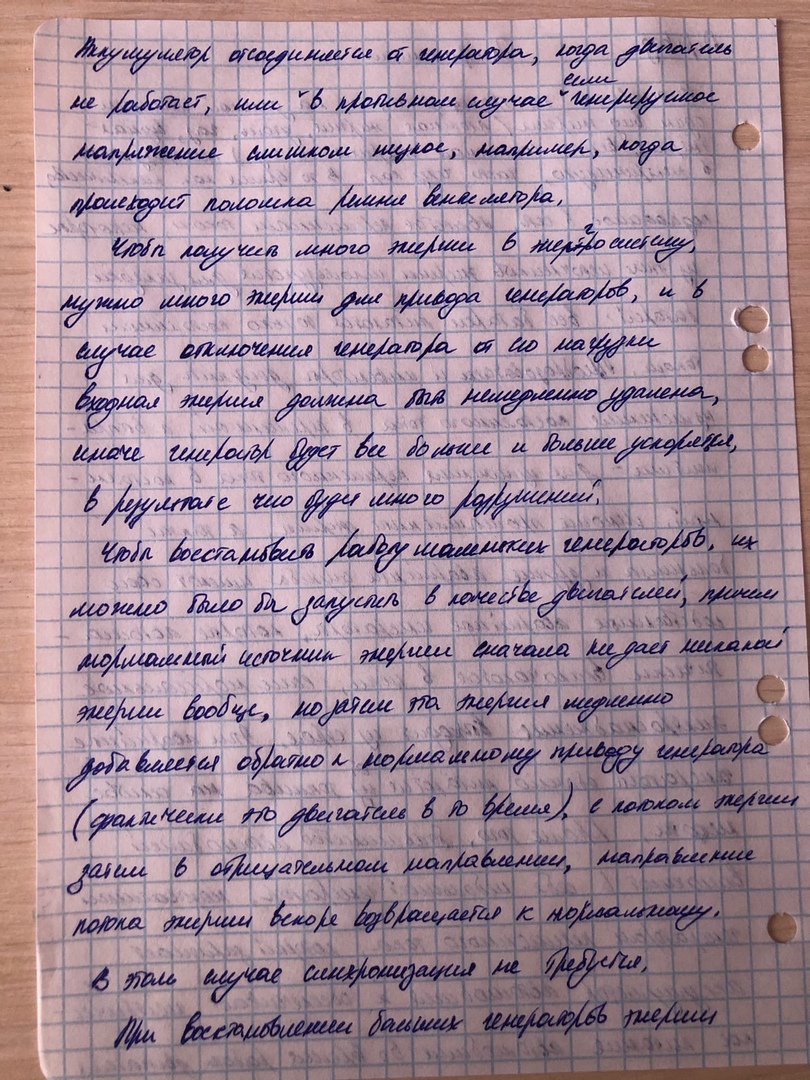 Аккумулятор отсоединяется от генератора, когда двигатель
не работает, или в противном случае если генерируемое
напряжение слишком низкое, например, когда
происходит поломка ремня вентилятора.
Чтобы получить много энергии в энергосистему,
нужно много энергии для привода генераторов, и в
случае отключения генератора от его нагрузки
входная энергия должна быть немедленно удалена,
иначе генератор будет все больше и больше ускорятся,
в результате чего будет много разрушений.
Чтобы восстановить работу маленьких генераторов, их
можно было бы запустить в качестве двигателей, причем
нормальный источник энергии сначала не дает никакой
энергии вообще, но затем эта энергия медленно
добавляется обратно к нормальному приводу генератора
(фактически это двигатель в то время), с потоком энергии
затем в отрицательном направлении, направление
потока энергии вскоре возвращается к нормальному.
В этом случае синхронизация не требуется.
При восстановлении больших генераторов энергии